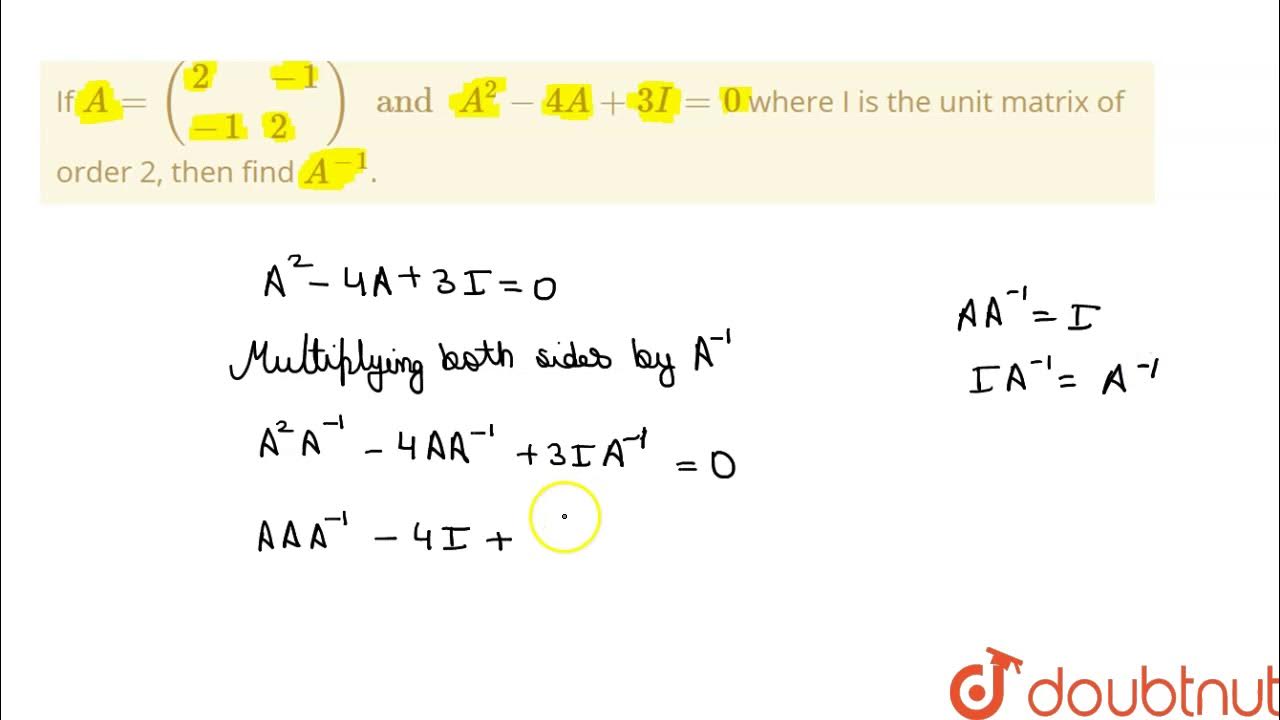 If A = ( 2 −1
−1 2 ) and A² − 4A + 3I = 0 where I is the unit matrix of
order 2, then find A⁻¹.
A² − 4A + 3I = 0
AA⁻¹ = I
Multiplying both sides by A⁻¹
IA⁻¹ = A⁻¹
A²A⁻¹ − 4AA⁻¹ + 3IA⁻¹ = 0
AAA⁻¹ − 4I +
doubtnut